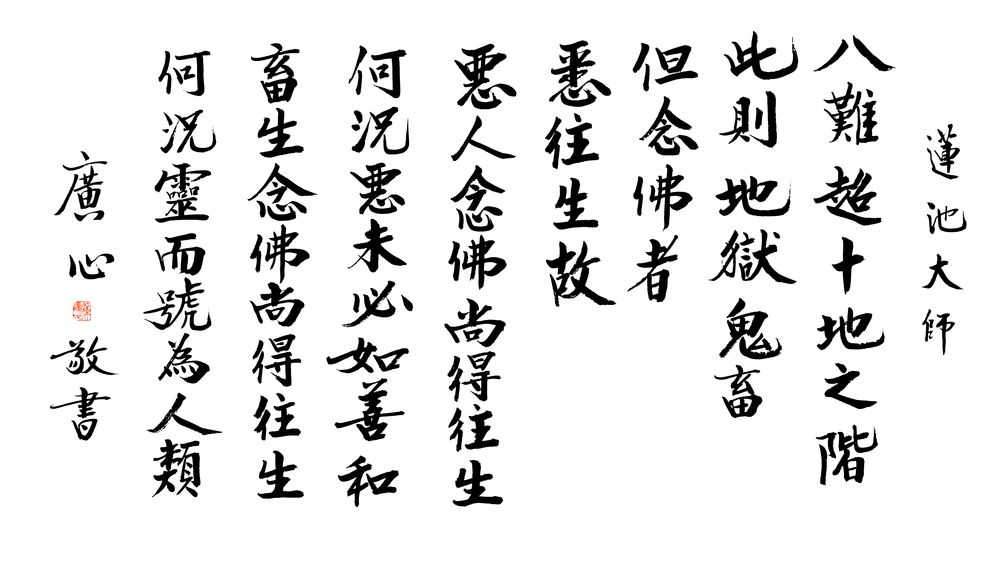 蓮池大師
八難超十地之階
此則地獄鬼畜
但念佛者
悉往生故
惡人念佛尚得往生
何況惡未必如善和
畜生念佛尚得往生
何況靈而號為人類
廣心
敬書